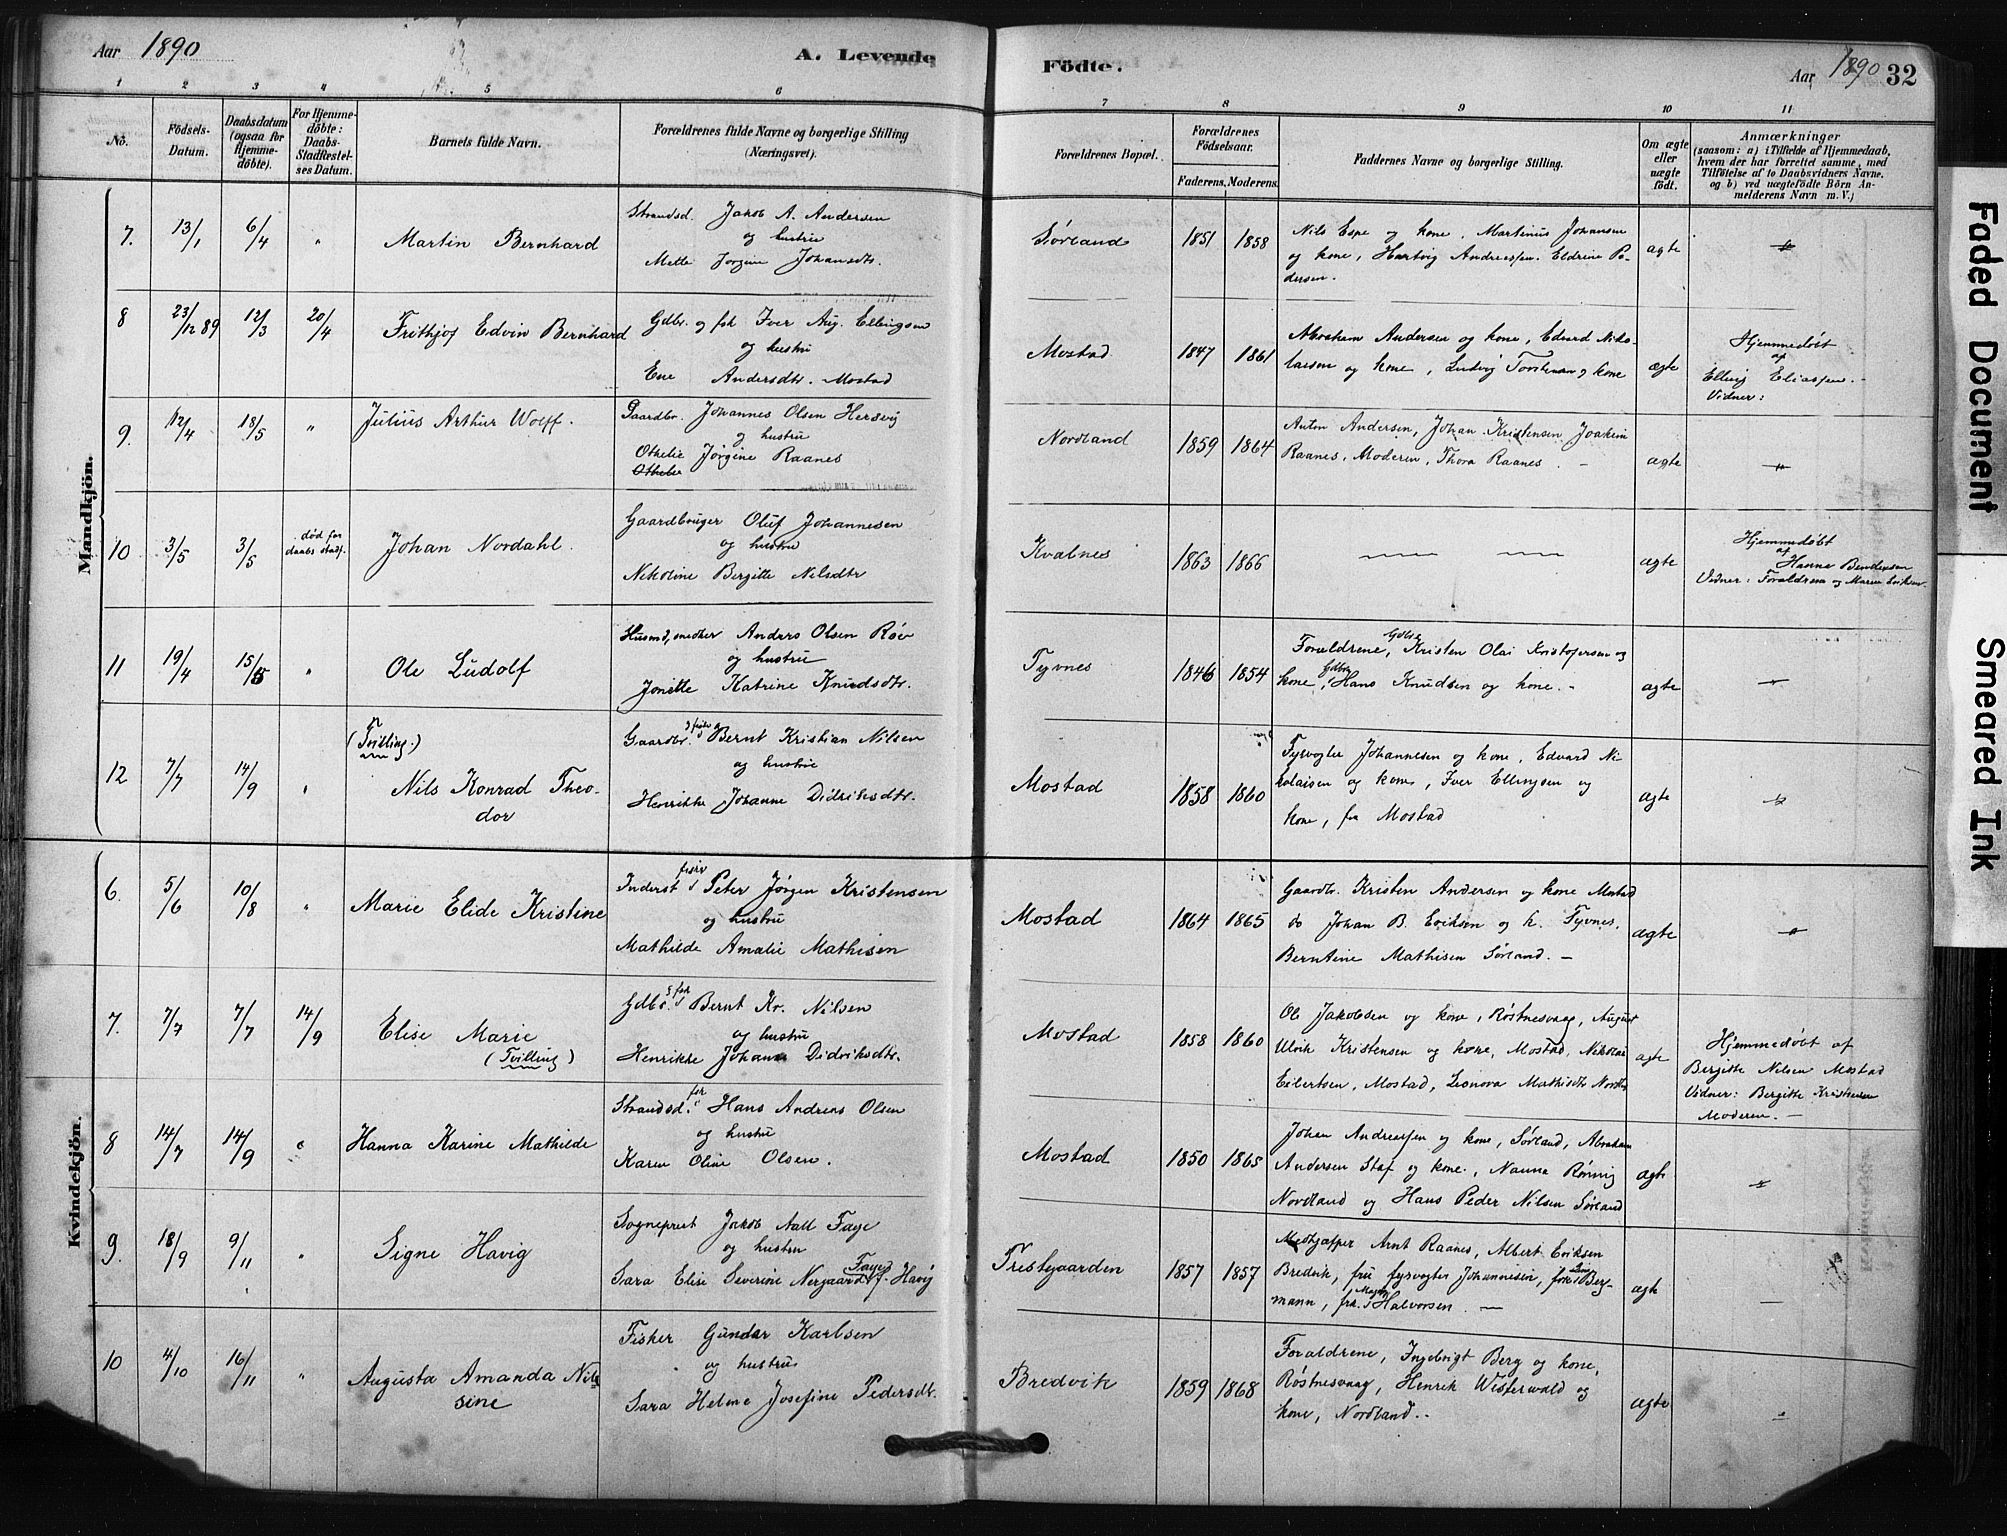 Aar 1890
A. Levende Födte.
Aar 1890 32
1 2 3 4 5 6 7 8 9 10 11
No.
Födsels-Datum.
Daabsdatum (ogsaa for Hjemmedöbte).
For Hjemmedöbte: Daabs-Stadfæstelses Datum.
Barnets fulde Navn.
Forældrenes fulde Navne og borgerlige Stilling
(Næringsvei).
Forældrenes Bopæl.
Forældrenes Födselsaar.
Faderens. Moderens.
Faddernes Navne og borgerlige Stilling.
Om ægte eller uægte födt.
Anmærkninger
(saasom: a) i Tilfælde af Hjemmedaab,
hvem der har forrettet samme, med
Tilföielse af to Daabsvidners Navne.
og b) ved uægtefödte Börn An-
melderens Navn m. V.)
Mandkjön.
7. 13/1 6/4 " Martin Bernhard
Strandsd. Jakob A. Andersen
og hustru
Mette Jorgine Johansdtr.
Sørland 1851 1858
Nils Espe og kone. Martinus Johansen
og kone, Hartvig Andreassen. Eldrine Pe-
dersen.
ægte "
8 23/12 89 12/3 20/4 Frithjof Edvin Bernhard
Gdbr. og fsk Iver Aug. Ellingsen
og hustru
Ene Andersdtr. Mostad
Mostad 1847 1861
Abraham Andersen og kone, Edvard Niko-
laisen og kone, Ludvig Torstensen og kone
ægte
Hjemmedøbt
af
Elling Eliassen.
Vidner:
9. 12/4 18/5 " Julius Arthur Wolff.
Gaardbr. Johannes Olsen Hersvig
og hustru
Othelie Jørgine Raanes
Othelie
Nordland 1859 1864
Anton Andersen, Johan Kristensen Joakim
Raanes, Moderen, Thora Raanes. -
ægte "
10 3/5 3/5 død før daabs stadf. Johan Nordahl.
Gaardbruger Oluf Johannesen
og hustru
Nikoline Bergitte Nilsdtr
Kvalnes 1863 1866
ægte
Hjemmedøbt
af
Hanne Bendixsen
Vidner: Forældrene og Maren Eriksen
11 19/4 15/5 " Ole Ludolf
Husmd, snedker Anders Olsen Røv
og hustru
Jonette Katrine Knudsdtr.
Tyvnes 1846 1854
Forældrene, Gdbr. Kristen Olai Kristofersen og
kone, Gdbr. Hans Knudsen og kone. -
ægte "
12 7/7 14/9 "
(Tvilling.)
Nils Konrad Theo-
dor
Gaardbr. Bernt Kristian Nilsen
og hustru
Henrikke Johanne Didriksdtr.
Mostad 1858 1860
Fyrvogter Johannesen og kone, Edvard Ni-
kolaisen og kone, Iver Ellingsen og
kone, fra Mostad
ægte "
Kvindekjön.
6. 5/6 10/8 " Marie Elide Kristine
Inderst Peter Jørgen Kristensen
og hustru
Mathilde Amalie Mathisen
Mostad 1864 1865
Gaardbr. Kristen Andersen og kone Mostad
do Johan B. Eriksen og k. Tyvnes.
Berntine Mathisen Sørland. -
ægte "
7. 7/7 7/7 14/9 Elise Marie
(Tvilling)
Gdbr. og fsk Bernt Kr. Nilsen
og hustru
Henrikke Johanne Didriksdtr.
Mostad 1858 1860
Ole Jakobsen og kone, Røstnesvaag, August
Ulrik Kristensen og kone, Mostad, Nikolai
Eilertsen, Mostad, Leonora Mathisdtr Nordland
ægte
Hjemmedøbt af
Bergitte Nilsen Mostad
Vidner: Bergitte Kristensen
Moderen. -
8 14/7 14/9 " Hanna Karine Mathilde
Strandsd. fsk Hans Andreas Olsen
og hustru
Karen Oline Olsen.
Mostad 1850 1865
Johan Andreassen og kone, Sørland, Abraham
Andersen Staf og kone, Nanna Rønnig
Nordland og Hans Peder Nilsen Sørland
ægte "
9. 18/9 9/11 " Signe Havig
Sogneprest Jakob Aall Faye
og hustru
Sara Elise Severine Nergaard Faye f. Havig
Prestgaarden 1857 1857
Arnt Raanes, Albert Eriksen
Bredvik, fru fyrvogter Johannesen, frk. Berg-
mann, frk. Halvorsen. -
ægte -
10 4/10 16/11 " Augusta Amanda Nil-
sine
Fisker Gundar Karlsen
og hustru
Sara Helene Josefine Pedersdtr.
Bredvik 1859 1868
Forældrene, Ingebrigt Berg og kone,
Røstnesvaag, Henrik Westerwald og
kone, Nordland. -
ægte "
Faded Document
Smeared Ink